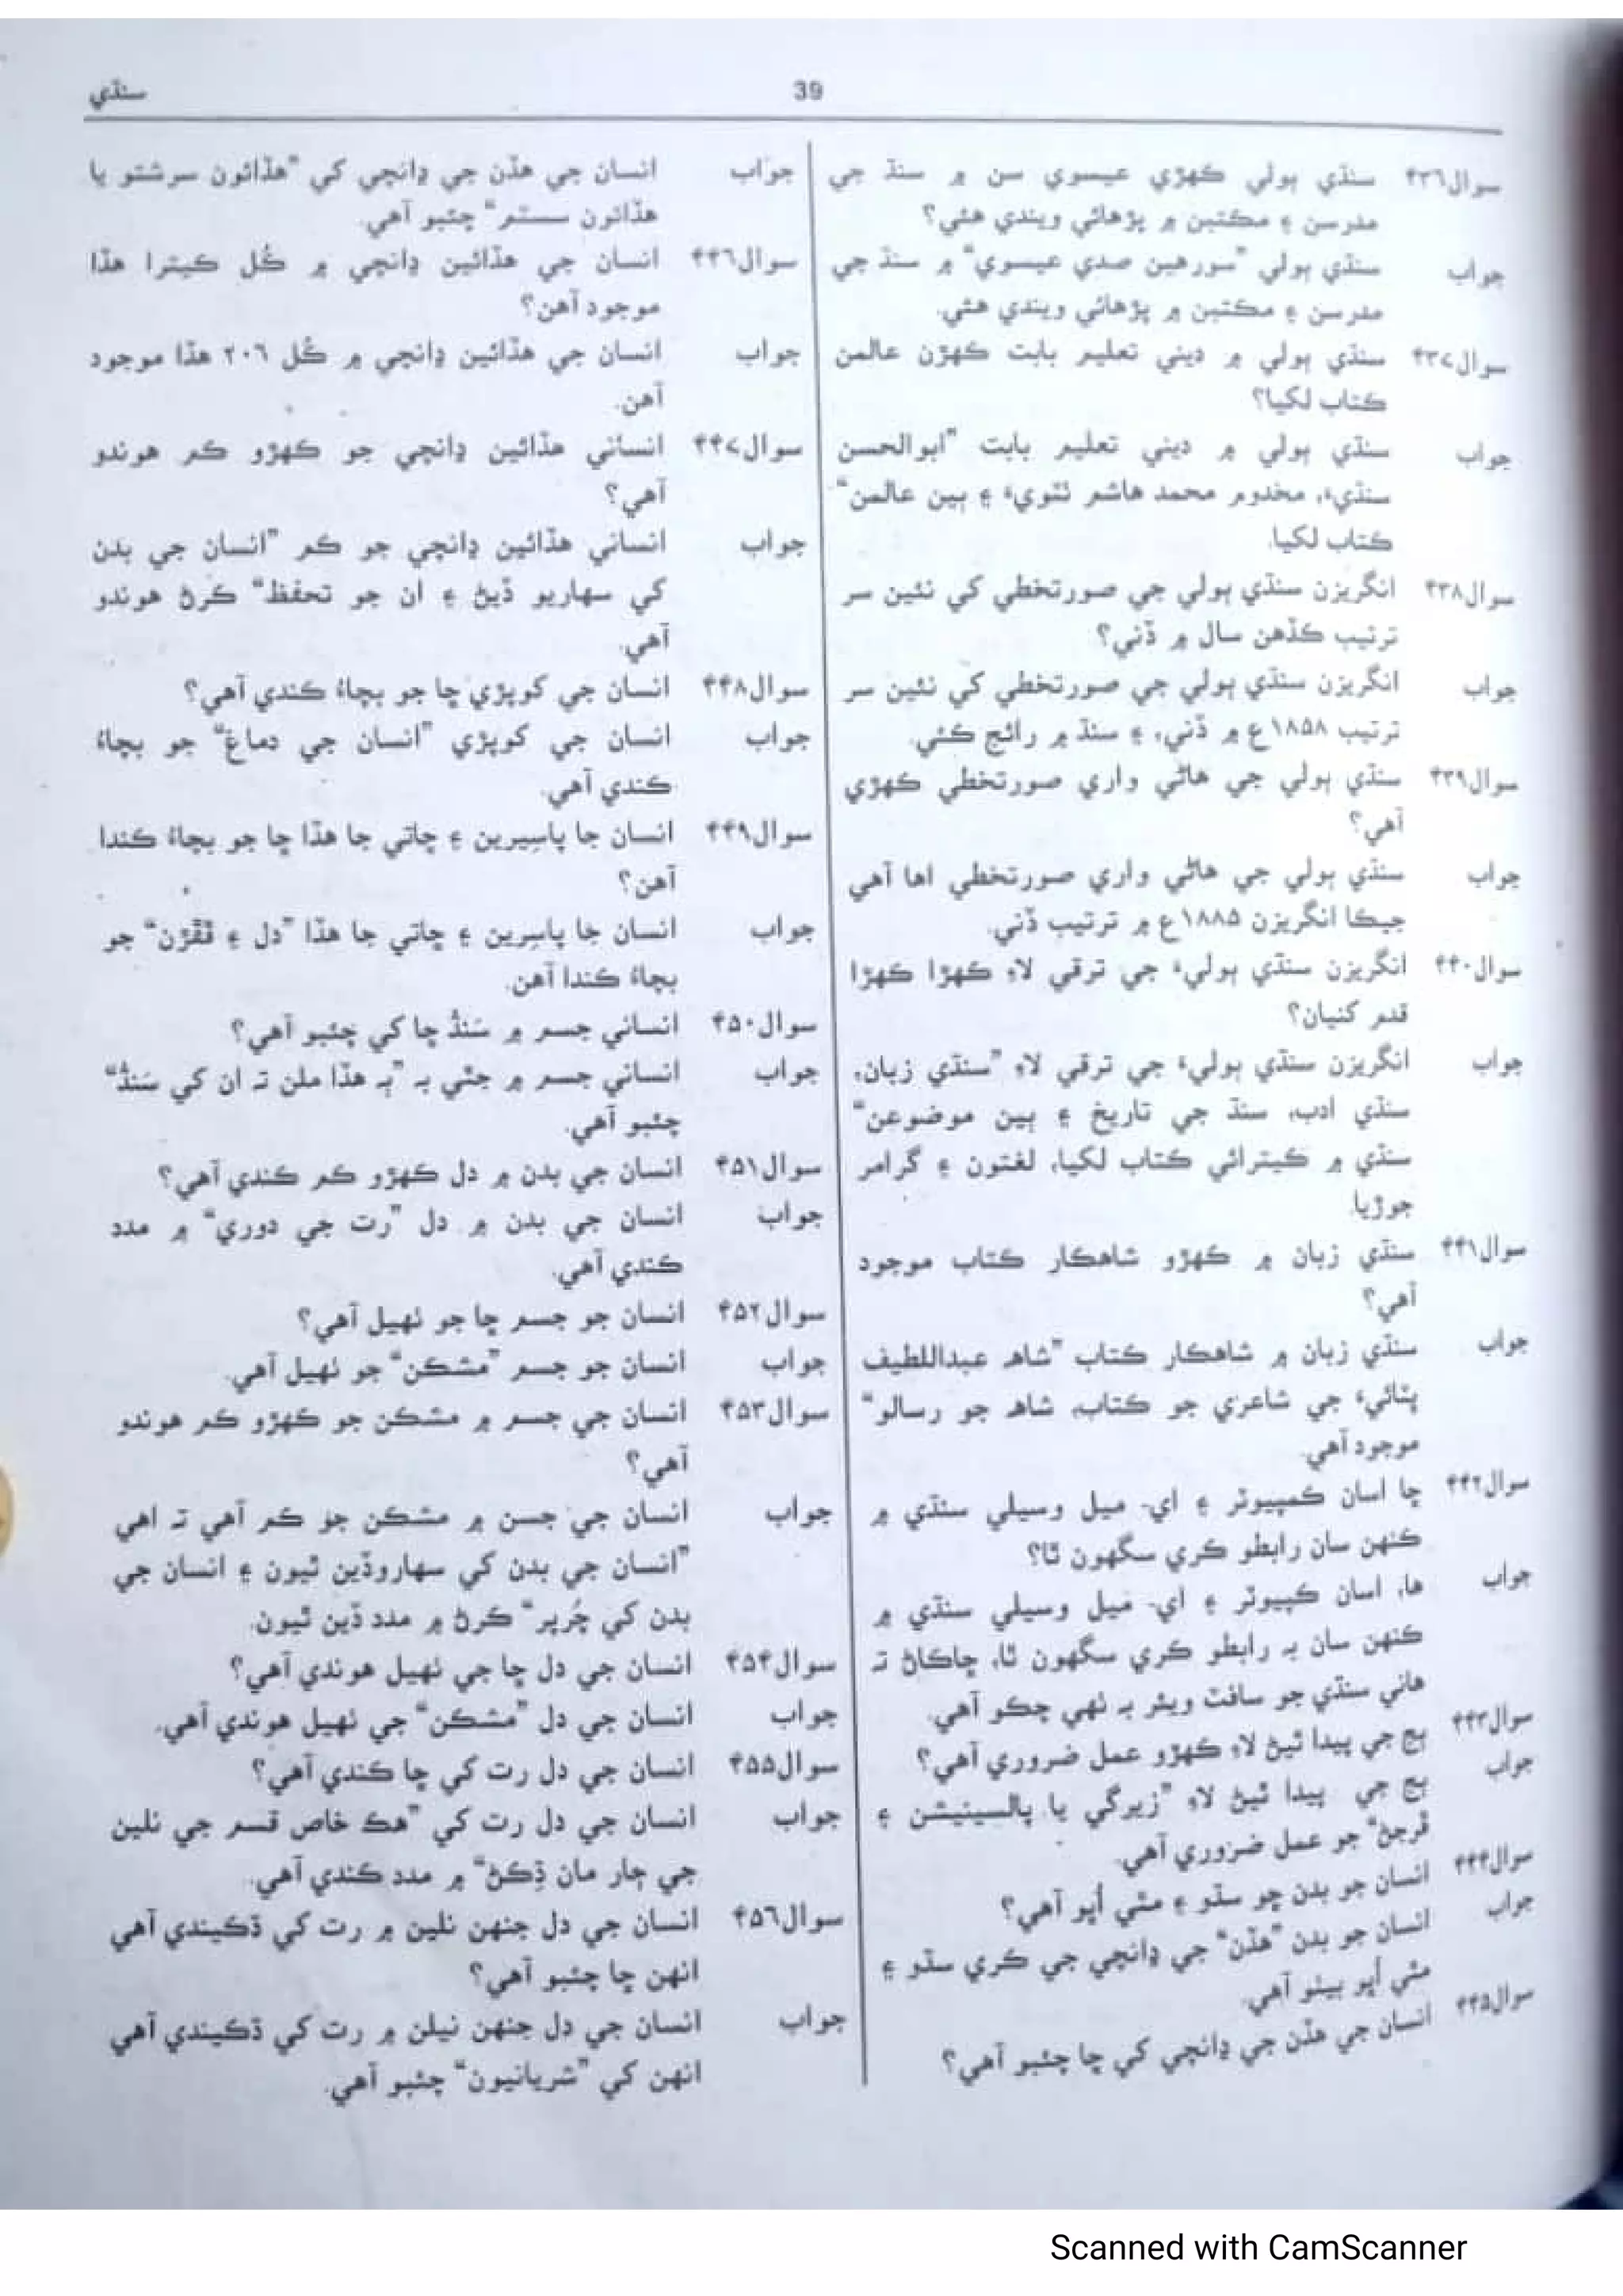 39
سنڌي
سوال۴۳٦ سنڌي ٻولي ڪهڙي عيسوي سن ۾ سنڌ جي
مدرسن ۽ مڪتبن ۾ پڙهائي ويندي هئي؟
جواب سنڌي ٻولي ”سورهين صدي عيسوي“ ۾ سنڌ جي
مدرسن ۽ مڪتبن ۾ پڙهائي ويندي هئي.
سوال۴۳۷ سنڌي ٻولي ۾ ديني تعليم بابت ڪهڙن عالمن
ڪتاب لکيا؟
جواب سنڌي ٻولي ۾ ديني تعليم بابت ”ابوالحسن
سنڌيءَ، مخدوم محمد هاشم ٺٽويءَ ۽ ٻين عالمن“
ڪتاب لکيا.
سوال۴۳۸ انگريزن سنڌي ٻولي جي صورتخطي کي نئين سر
ترتيب ڪڏهن سال ۾ ڏني؟
جواب انگريزن سنڌي ٻولي جي صورتخطي کي نئين سر
ترتيب ۱۸۵۸ع ۾ ڏني، ۽ سنڌ ۾ رائج ڪئي.
سوال۴۳۹ سنڌي ٻولي جي هاڻي واري صورتخطي ڪهڙي
آهي؟
جواب سنڌي ٻولي جي هاڻي واري صورتخطي اها آهي
جيڪا انگريزن ۱۸۸۵ع ۾ ترتيب ڏني.
سوال۴۴۰ انگريزن سنڌي ٻوليءَ جي ترقي لاءِ ڪهڙا ڪهڙا
قدم کنيان؟
جواب انگريزن سنڌي ٻوليءَ جي ترقي لاءِ ”سنڌي زبان،
سنڌي ادب، سنڌ جي تاريخ ۽ ٻين موضوعن“
سنڌي ۾ ڪيترائي ڪتاب لکيا، لغتون ۽ گرامر
جوڙيا.
سوال۴۴۱ سنڌي زبان ۾ ڪهڙو شاهڪار ڪتاب موجود
آهي؟
جواب سنڌي زبان ۾ شاهڪار ڪتاب ”شاهه عبداللطيف
ڀٽائيءَ جي شاعري جو ڪتاب، شاهه جو رسالو“
موجود آهي.
سوال۴۴۲ ڇا اسان ڪمپيوٽر ۽ اي- ميل وسيلي سنڌي ۾
ڪنهن سان رابطو ڪري سگهون ٿا؟
جواب ها، اسان ڪمپيوٽر ۽ اي- ميل وسيلي سنڌي ۾
ڪنهن سان به رابطو ڪري سگهون ٿا، ڇاڪاڻ ته
هاڻي سنڌي جو سافٽ ويئر به ٺهي چڪو آهي.
سوال۴۴۳ ٻج جي پيدا ٿيڻ لاءِ ڪهڙو عمل ضروري آهي؟
جواب ٻج جي پيدا ٿيڻ لاءِ ”زيرگي يا پالسينيشن ۽
ڦرجڻ“ جو عمل ضروري آهي.
سوال۴۴۴ انسان جو بدن ڇو سڌو ۽ مٿي اُڀو آهي؟
جواب انسان جو بدن ”هڏن“ جي ڍانچي جي ڪري سڌو ۽
مٿي اُڀو بيٺو آهي.
سوال۴۴۵ انسان جي هڏن جي ڍانچي کي ڇا چئبو آهي؟
جواب انسان جي هڏن جي ڍانچي کي ”هڏائون سرشتو يا
هڏائون سسٽم“ چئبو آهي.
سوال۴۴٦ انسان جي هڏائين ڍانچي ۾ ڪُل ڪيترا هڏا
موجود آهن؟
جواب انسان جي هڏائين ڍانچي ۾ ڪُل ۲۰٦ هڏا موجود
آهن.
سوال۴۴۷ انساني هڏائين ڍانچي جو ڪهڙو ڪم هوندو
آهي؟
جواب انساني هڏائين ڍانچي جو ڪم ”انسان جي بدن
کي سهاريو ڏيڻ ۽ ان جو تحفظ“ ڪرڻ هوندو
آهي.
سوال۴۴۸ انسان جي کوپڙي ڇا جو بچاءُ ڪندي آهي؟
جواب انسان جي کوپڙي ”انسان جي دماغ“ جو بچاءُ
ڪندي آهي.
سوال۴۴۹ انسان جا پاسيرين ۽ ڇاتي جا هڏا ڇا جو بچاءُ ڪندا
آهن؟
جواب انسان جا پاسِرين ۽ ڇاتي جا هڏا ”دل ۽ ڦڦڙن“ جو
بچاءُ ڪندا آهن.
سوال۴۵۰ انساني جسم ۾ سَنڌُ ڇا کي چئبو آهي؟
جواب انساني جسم ۾ جتي به ”ٻه هڏا ملن ته ان کي سَنڌُ“
چئبو آهي.
سوال۴۵۱ انسان جي بدن ۾ دل ڪهڙو ڪم ڪندي آهي؟
جواب انسان جي بدن ۾ دل ”رت جي دوري“ ۾ مدد
ڪندي آهي.
سوال۴۵۲ انسان جو جسم ڇا جو ٺهيل آهي؟
جواب انسان جو جسم ”مشڪن“ جو ٺهيل آهي.
سوال۴۵۳ انسان جي جسم ۾ مشڪن جو ڪهڙو ڪم هوندو
آهي؟
جواب انسان جي جسن ۾ مشڪن جو ڪم آهي ته اهي
”انسان جي بدن کي سهاروڏين ٿيون ۽ انسان جي
بدن کي چُرپر“ ڪرڻ ۾ مدد ڏين ٿيون.
سوال۴۵۴ انسان جي دل ڇا جي ٺهيل هوندي آهي؟
جواب انسان جي دل ”مشڪن“ جي ٺهيل هوندي آهي.
سوال۴۵۵ انسان جي دل رت کي ڇا ڪندي آهي؟
جواب انسان جي دل رت کي ”هڪ خاص قسم جي نلين
جي ڄار مان ڌِڪڻ“ ۾ مدد ڪندي آهي.
سوال۴۵٦ انسان جي دل جنهن نلين ۾ رت کي ڌڪيندي آهي
انهن ڇا چئبو آهي؟
جواب انسان جي دل جنهن نيلن ۾ رت کي ڌڪيندي آهي
انهن کي ”شريانيون“ چئبو آهي.
Scanned with CamScanner